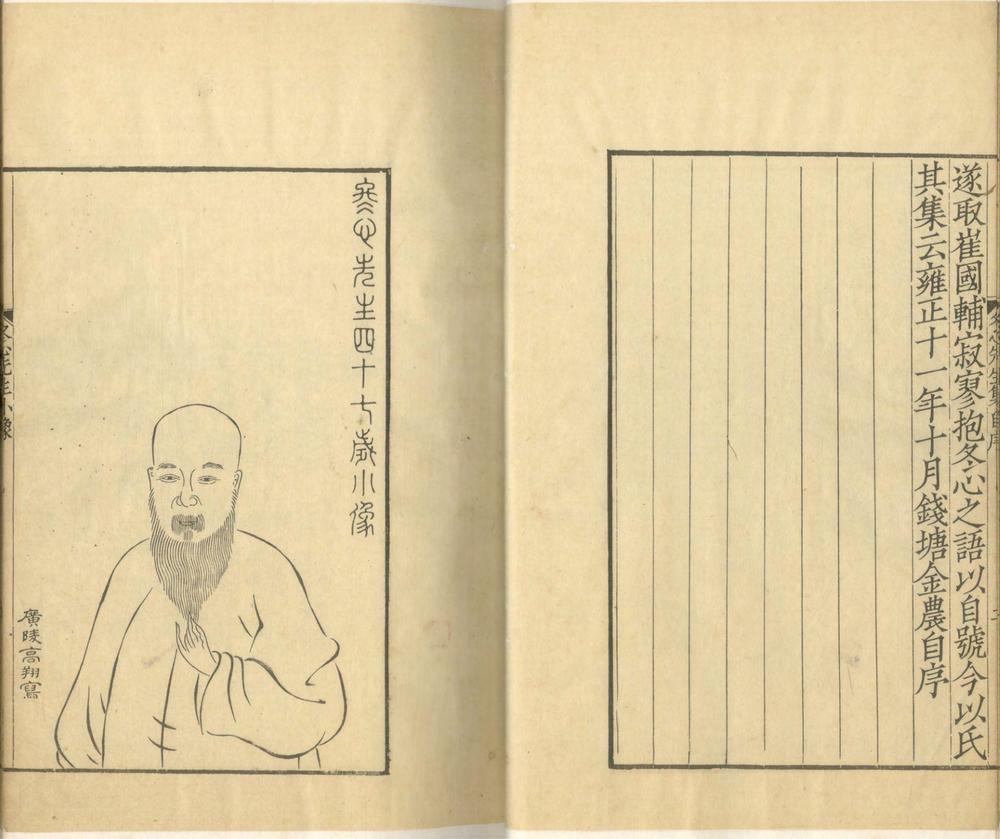 遂取崔國輔寂寥抱冬心之語以自號今以氏
其集云雍正十一年十月錢塘金農自序
冬心先生集自序
冬心先生四十七歲小像
廣陵高翔寫
冬心先生小像